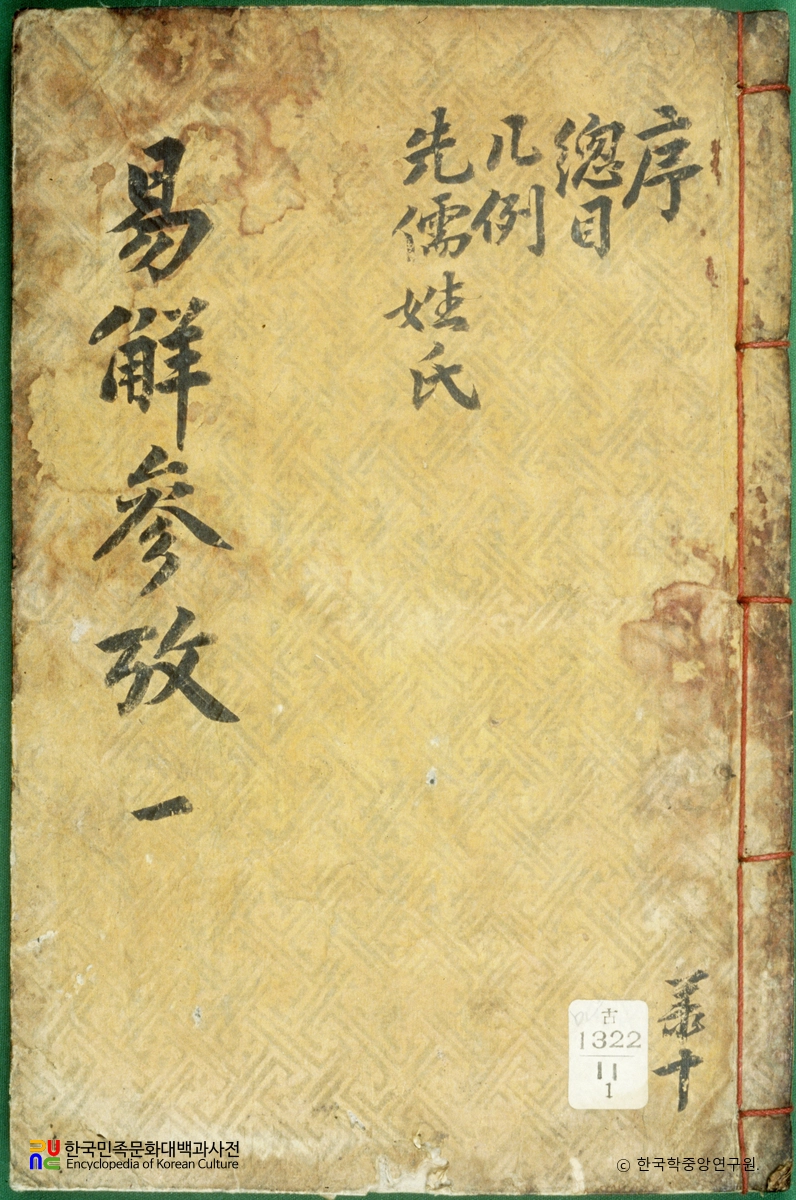 序
總目
凡例
先儒姓氏
易觧參攷 一
共十
古
1322
11
1
한국민족문화대백과사전
Encyclopedia of Korean Culture
© 한국학중앙연구원.